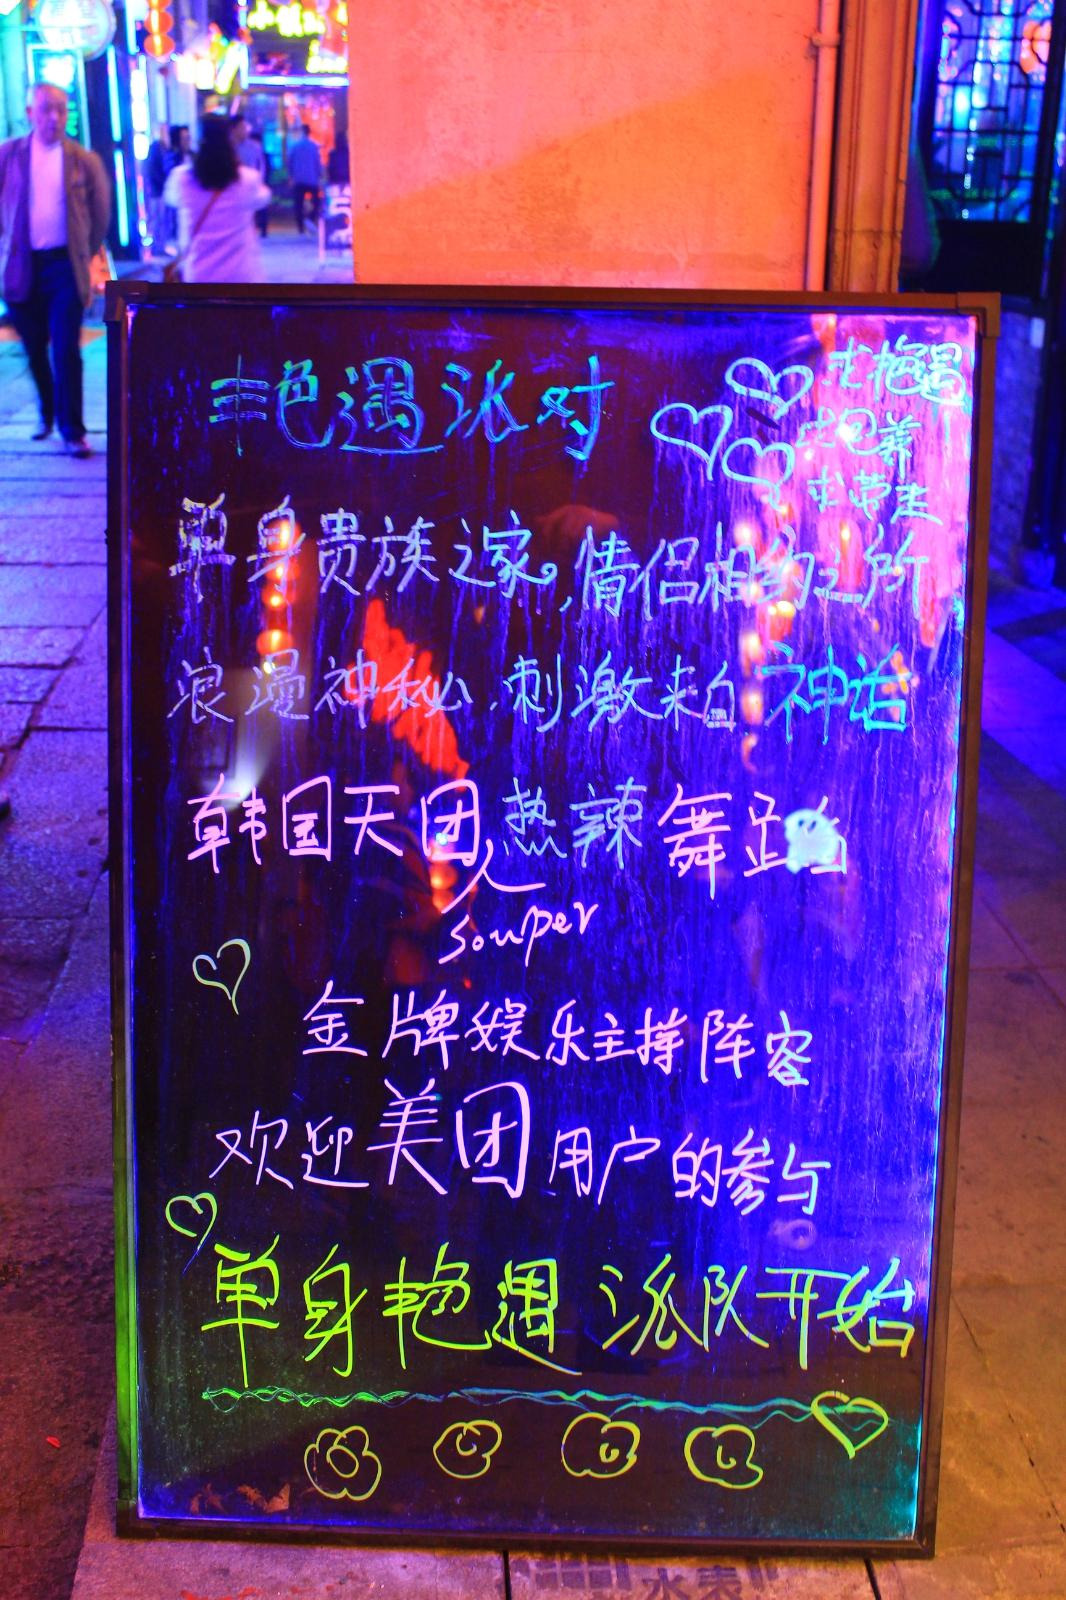 艳遇派对
求艳遇
求包养
求带走
单身贵族之家。,情侣相约之所
浪漫神秘.刺激来自神话
韩国天团热辣舞蹈
人
souper
金牌娱乐主撑阵容
欢迎美团用户的参与
单身艳遇 派队开始